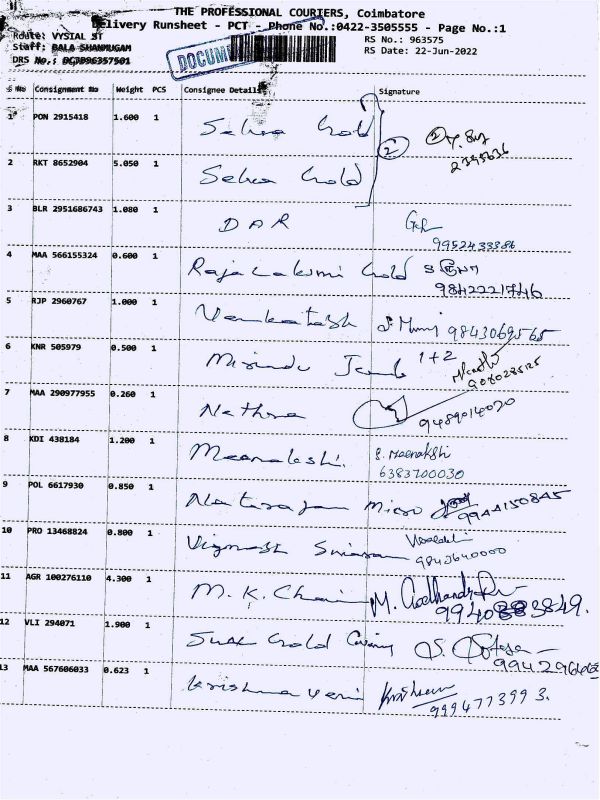 THE PROFESSIONAL COURIERS, Coimbatore
Delivery Runsheet - PCT - Phone No.:0422-3505555 - Page No.:1
Route: VYSIAL ST
RS No.: 963575
Staff: BALA SHANMUGAM
RS Date: 22-Jun-2022
DRS No.:
DOCUM
S No Consignment No Weight PCS Consignee Details Signature
1 PON 2915418 1.600 1 Selva Gold
2 RKT 8652904 5.050 1 Selva Gold
3 BLR 2951686743 1.080 1 DAR
4 MAA 566155324 0.600 1 Raja Lakumi Gold
9842221746
5 RJP 2960767 1.000 1 Venkatesh 9843069565
6 KNR 505979 0.500 1 1+2
7 MAA 290977955 0.260 1 Nethra 9489014020
8 KDI 438184 1.200 1 Meenakshi. S. Meenakshi
6383700030
9 POL 6617930 0.850 1 Natarajan Micro 9944150845
10 PRO 13468824 0.800 1
9843640000
11 AGR 100276110 4.300 1 M. K. Chain
12 VLI 294071 1.900 1 Gold Covering
13 MAA 567606033 0.623 1 Krishna veni
9994773993.